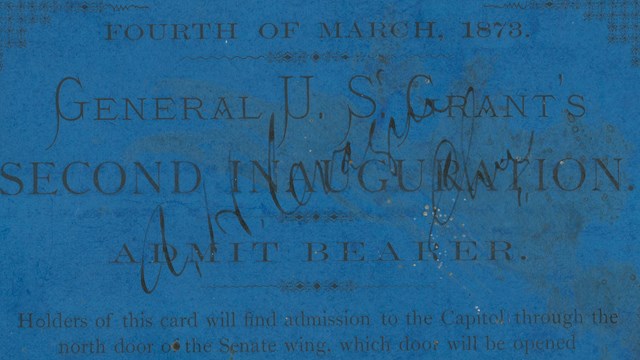 FOURTH OF MARCH, 1873.
GENERAL U. S. GRANT'S
SECOND INAUGURATION.
ADMIT BEARER.
Holders of this card will find admission to the Capitol through the
north door of the Senate wing, which door will be opened